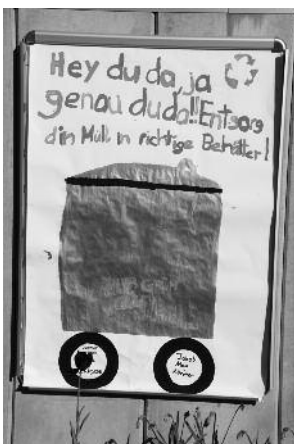 Hey du da, ja
genau du da!! Entsorg
din Müll in richtige Behälter!
Jakob
Max